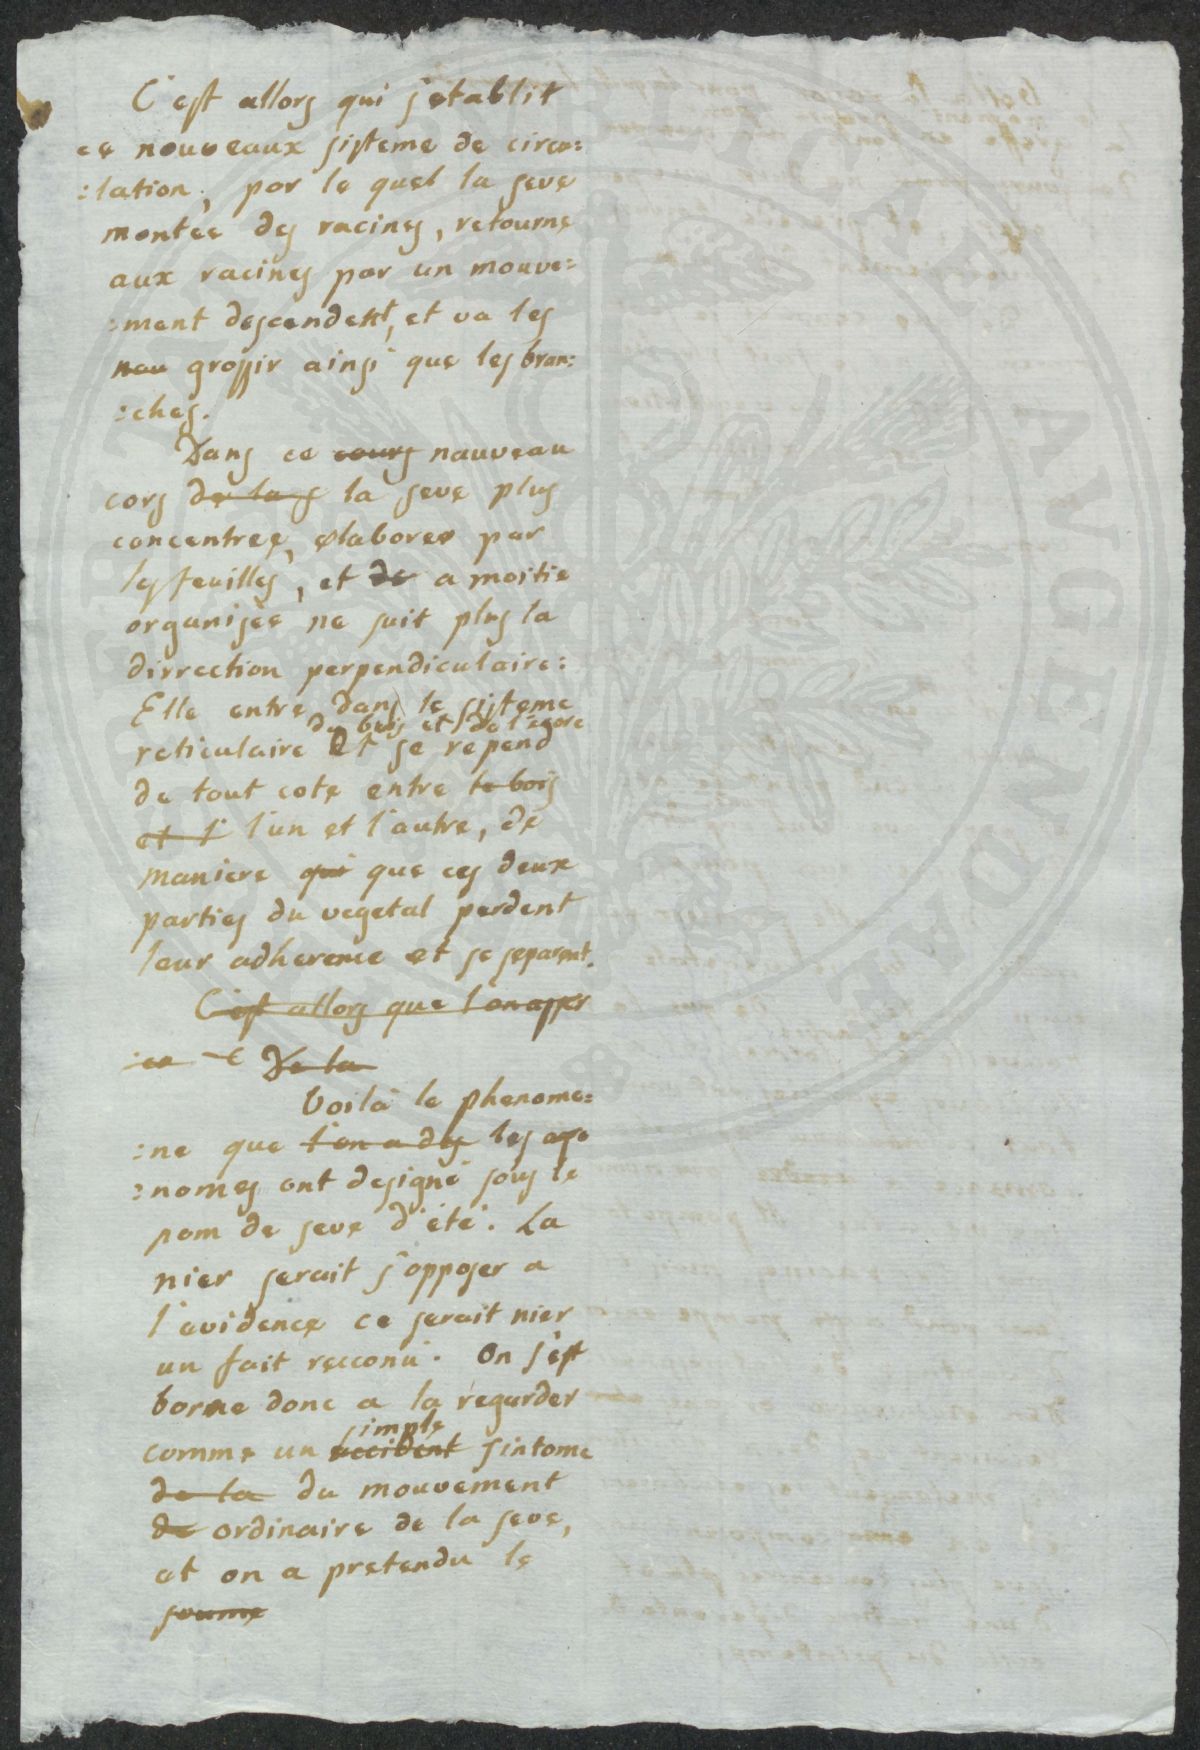 C'est allors qui s'etablit
ce nouveaux sisteme de circu:
:lation, par le quel la seve
montée des racines, retourne
aux racines par un mouve:
:ment descendent, et va les
nou grossir ainsi que les bran:
:ches.
Dans ce cours nauveau
cors de la s la seve plus
concentree, elaboree par
les feuilles, et de a moitie
organisée ne suit plus la
dirrection perpendiculaire:
Elle entre dans le sisteme
du bois et de l'ecore
reticulaire et se repend
de tout cote entre le bois
et l' l'un et l'autre, de
maniere qui que ces deux
parties du vegetal perdent
leur adherence et se separent.
C'est allors que l'on apper
De la
Voilà le phenome:
:ne que l'on a des les agro
:nomes ont designé sous le
nom de seve d'été. La
nier serait s'opposer a
l'evidence ce serait nier
un fait recconu. On s'est
borne donc a la regarder
simple
comme un accident sintome
de la du mouvement
de ordinaire de la seve,
et on a pretendu le